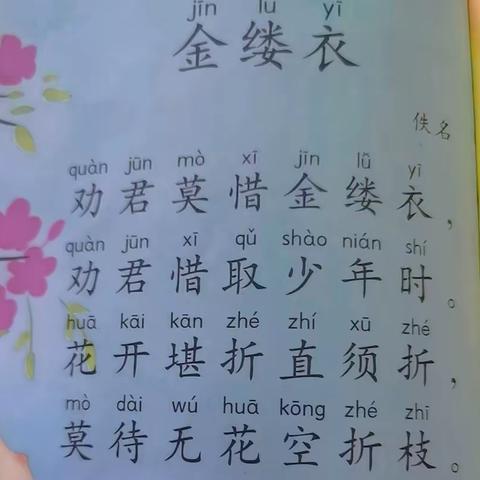 jīn lǚ yī
金缕衣
佚名
quàn jūn mò xī jīn lǚ yī
劝君莫惜金缕衣，
quàn jūn xī qǔ shào nián shí
劝君惜取少年时。
huā kāi kān zhé zhí xū zhé
花开堪折直须折，
mò dài wú huā kōng zhé zhī
莫待无花空折枝。